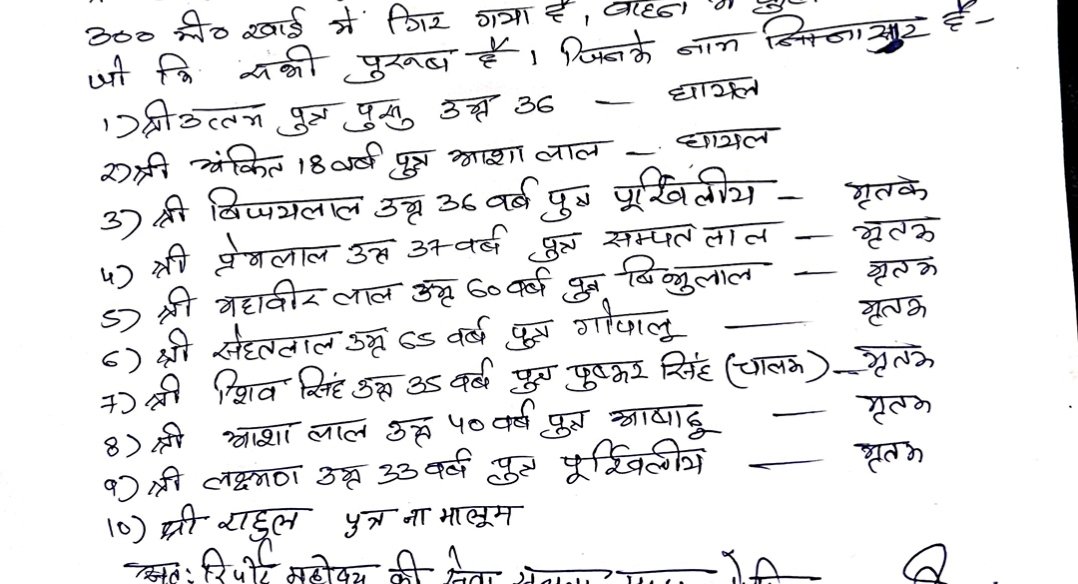 300 मी० खाई में गिर गया है, वाहन में
जो कि सभी पुरूष है। जिनके नाम निम्नानुसार है-
1) श्री उत्तम पुत्र पुसु उम्र 36 — घायल
2) श्री अंकित 18 वर्ष पुत्र आशा लाल — घायल
3) श्री बिजयलाल उम्र 36 वर्ष पुत्र — मृतक
4) श्री प्रेमलाल उम्र 37 वर्ष पुत्र सम्पत लाल — मृतक
5) श्री महावीर लाल उम्र 60 वर्ष पुत्र — मृतक
6) श्री उम्र 65 वर्ष पुत्र गोपालू — मृतक
7) श्री शिव सिंह उम्र 35 वर्ष पुत्र पुष्कर सिंह (चालक) — मृतक
8) श्री आशा लाल उम्र 40 वर्ष पुत्र आषाढू — मृतक
9) श्री लक्ष्मण उम्र 33 वर्ष पुत्र — मृतक
10) श्री राहुल पुत्र ना मालूम
अतः रिपोर्ट महोदय की सेवा